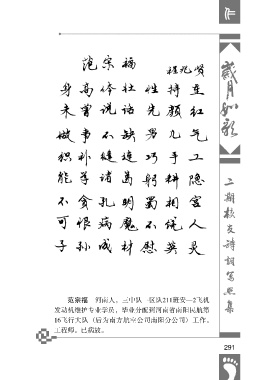 岁月如歌
二期校友诗词写照集
范宗福
程兆贤
身高体壮性持重
未曾说话先颜红
做事不缺男儿气
织补缝连巧手工
能学诸葛躬耕隐
不贪孔明蜀相宫
可恨病魔不饶人
子孙成材慰英灵
范宗福 河南人。三中队一区队211班安—2飞机
发动机维护专业学员，毕业分配到河南省南阳民航第
16飞行大队（后为南方航空公司南阳分公司）工作。
工程师。已病故。
291